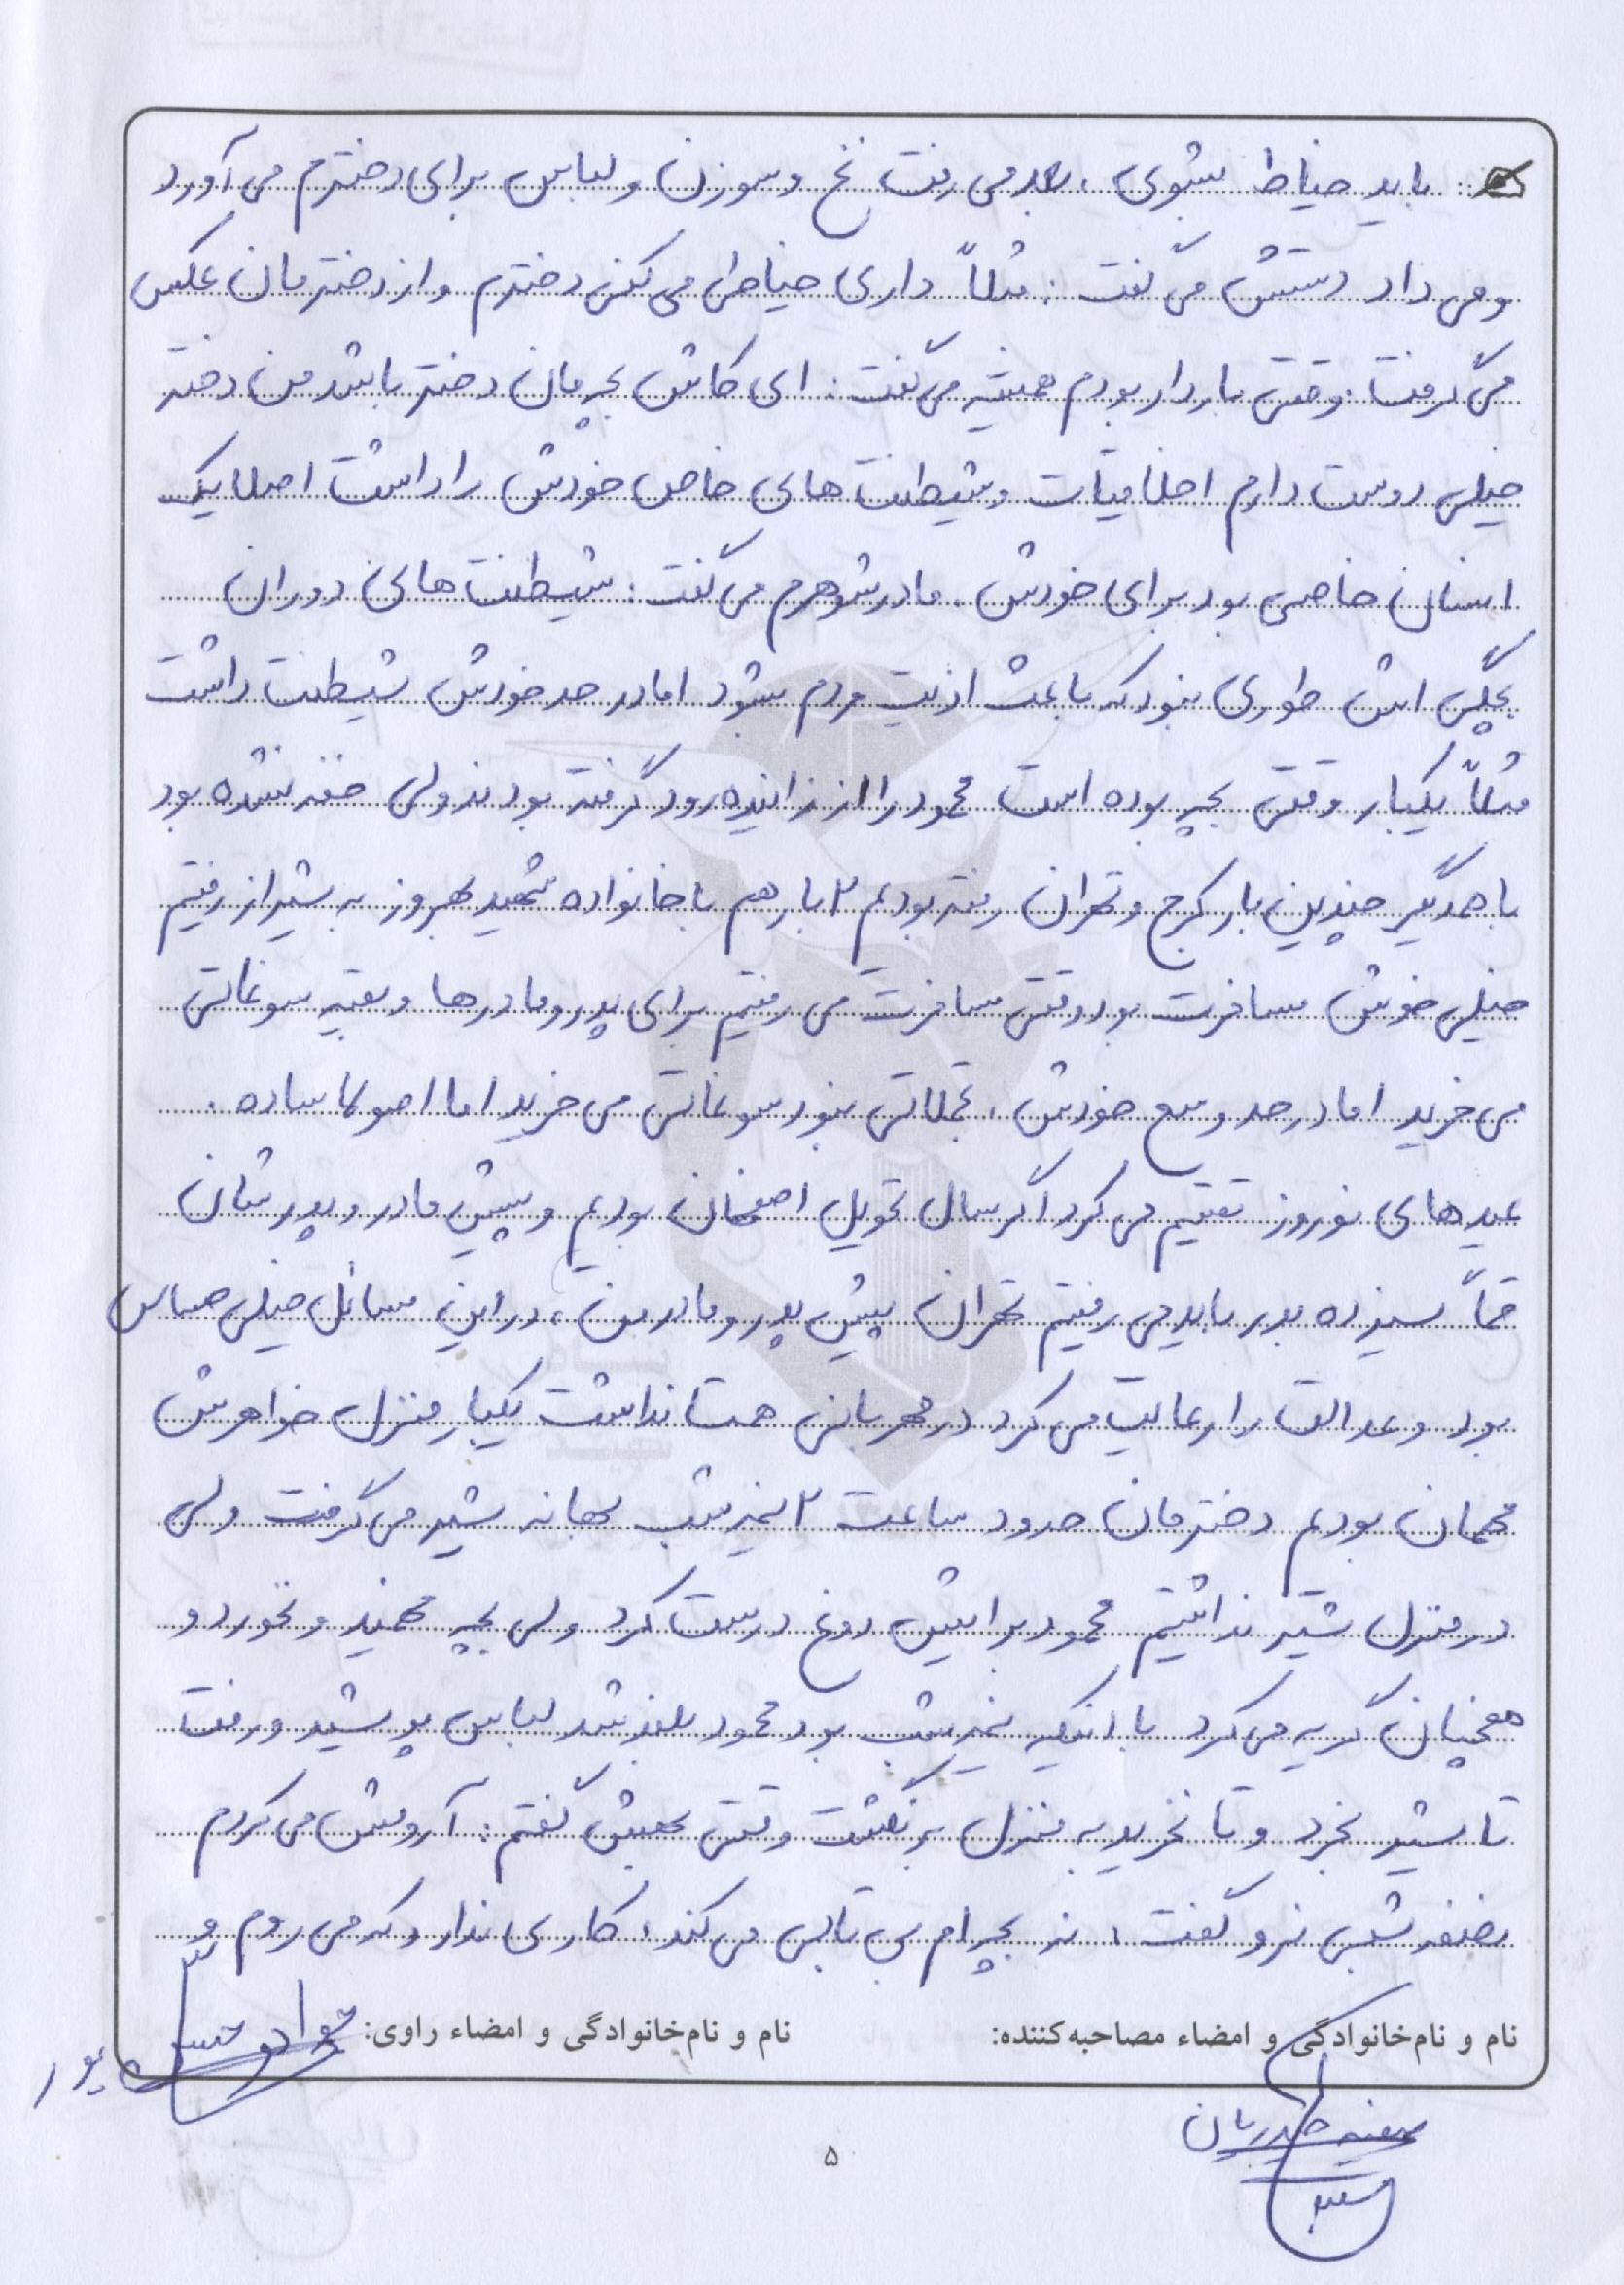 باید خیاط بشوی، بعد می رفت نخ و سوزن و لباس برای دخترم می آورد
و می داد دستش می گفت: مثلاً داری خیاطی می کنی دخترم و از دخترمان عکس
می گرفت. وقتی باردار بودم همیشه می گفت: ای کاش بچه مان دختر باشد من دختر
خیلی دوست دارم اخلاقیات و شیطنت های خاص خودش را داشت اصلا یک
انسان خاصی بود برای خودش. مادرشوهرم می گفت: شیطنت های دوران
بچگی اش طوری نبود که باعث اذیت مردم بشود اما در حد خودش شیطنت داشت
مثلاً یکبار وقتی بچه بوده است محمود را از زاینده رود گرفته بودند ولی خفه نشده بود
با همدیگر چندین بار کرج و تهران رفته بودیم ۲ بار هم با خانواده شهید بهروز به شیراز رفتیم
خیلی خوش مسافرت بود وقتی مسافرت می رفتیم برای پدر و مادرها و بقیه سوغاتی
می خرید اما در حد وسع خودش، تجملاتی نبود سوغاتی می خرید اما اصولا ساده.
عیدهای نوروز تقسیم می کرد اگر سال تحویل اصفهان بودیم و پیش مادر و پدرشان
حتماً سیزده بدر باید می رفتیم تهران پیش پدر و مادر من، در این مسائل خیلی حساس
بود و عدالت را رعایت می کرد در مهربانی همتا نداشت یکبار منزل خواهرش
مهمان بودیم دخترمان حدود ساعت ۲ نیمه شب بهانه شیر می گرفت ولی
در منزل شیر نداشتیم محمود برایش دوغ درست کرد ولی بچه فهمید و نخورد و
همچنان گریه می کرد با اینکه نیمه شب بود محمود بلند شد لباس پوشید و رفت
تا شیر بخرد و تا نخرید به منزل برنگشت وقتی بهش گفتم: آرومش می کردم
نصفه شبی نرو گفت، نه بچه ام بی تابی می کند، کاری ندارد که می روم و
نام و نام‌خانوادگی و امضاء مصاحبه‌کننده:
نام و نام‌خانوادگی و امضاء راوی:
۵